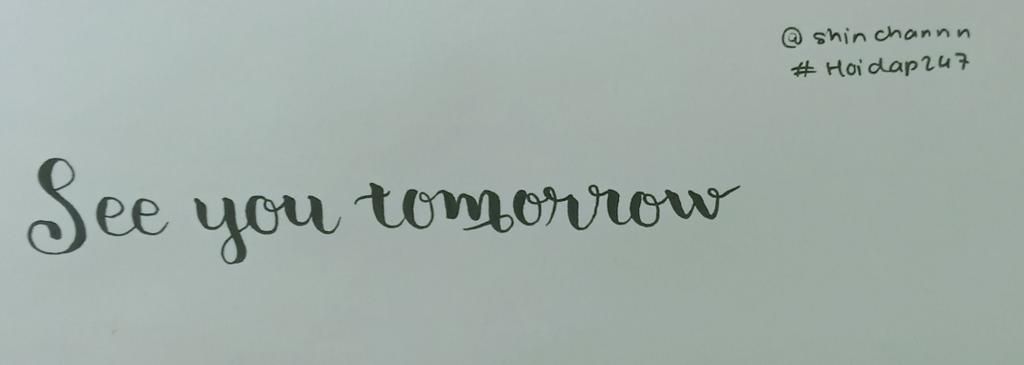 @shinchannn
#Hoidap247
See you tomorrow